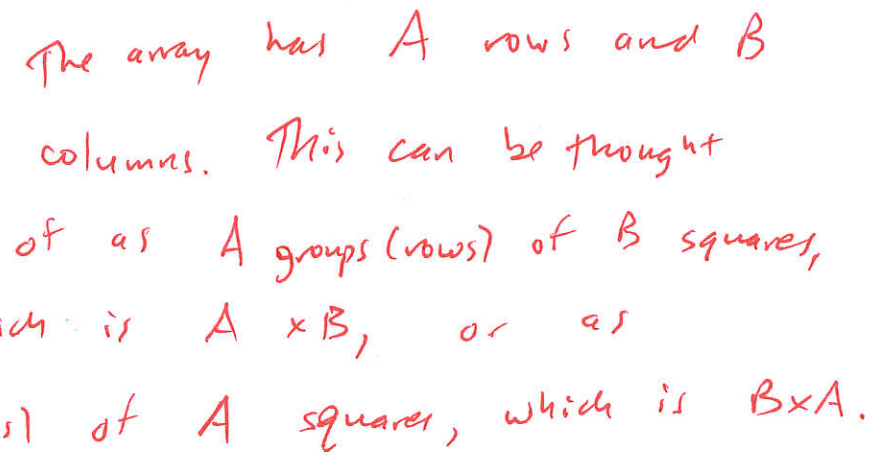 The array has A rows and B
columns. This can be thought
of as A groups (rows) of B squares,
is A x B, or as
of A squares, which is BxA.